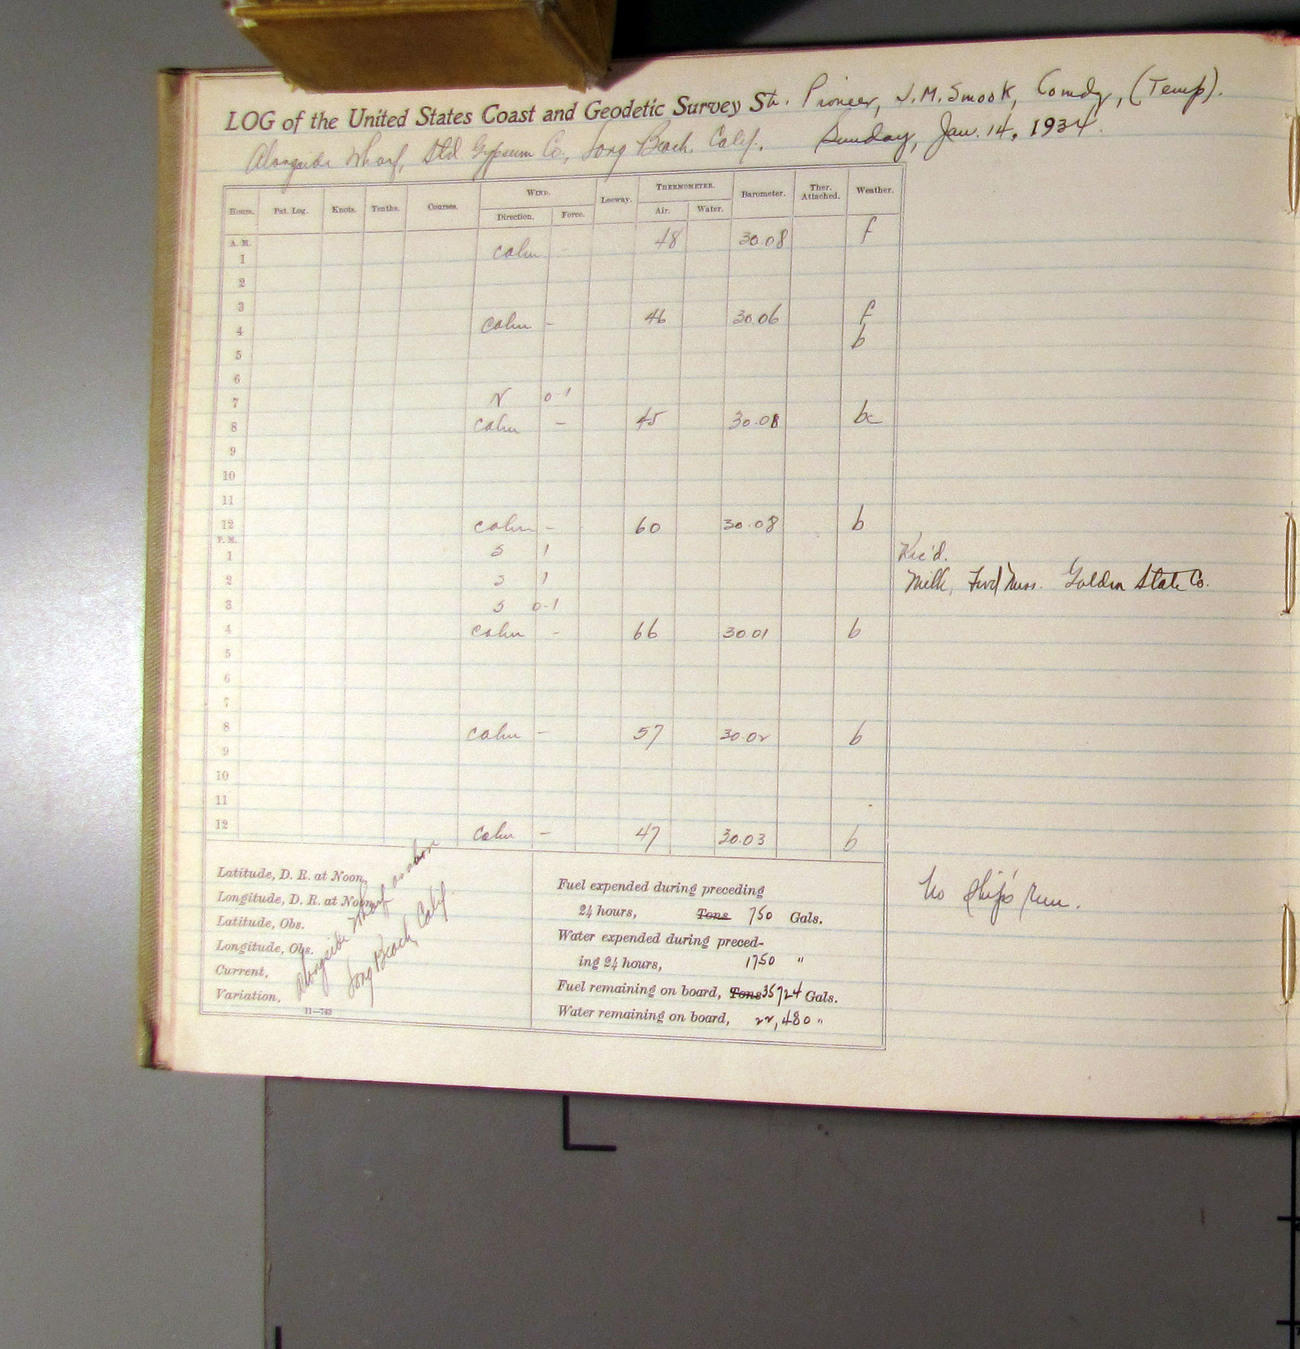 LOG of the United States Coast and Geodetic Survey Str. Pioneer, J.M. Smook, Comdg, (Temp).
Alongside Wharf, Std Gypsum Co., Long Beach. Calif. Sunday, Jan. 14, 1934.
Hours. Pat. Log. Knots. Tenths. Courses. WIND. Leeway. THERMOMETER. Barometer. Ther. Attached. Weather.
Direction. Force. Air. Water.
A. M.
1 calm - 48 30.08 f
2
3
4 calm - 46 30.06 f
b
5
6
7 N 0-1
8 calm - 45 30.08 bc
9
10
11
12 calm - 60 30.08 b
P. M.
1 S 1 Rec'd.
2 S 1 Milk, Fwd Mess. Golden State Co.
3 S 0-1
4 calm - 66 30 01 b
5
6
7
8 calm - 57 30.02 b
9
10
11
12 calm - 47 30.03 b
Latitude, D. R. at Noon,
Longitude, D. R. at Noon,
Latitude, Obs.
Longitude, Obs.
Current,
Variation,
Alongside Wharf as above
Long Beach, Calif.
11—763
Fuel expended during preceding
24 hours, Tons 750 Gals.
Water expended during preced-
ing 24 hours, 1750 "
Fuel remaining on board, Tons 35724 Gals.
Water remaining on board, 22,480 "
No ship's run.